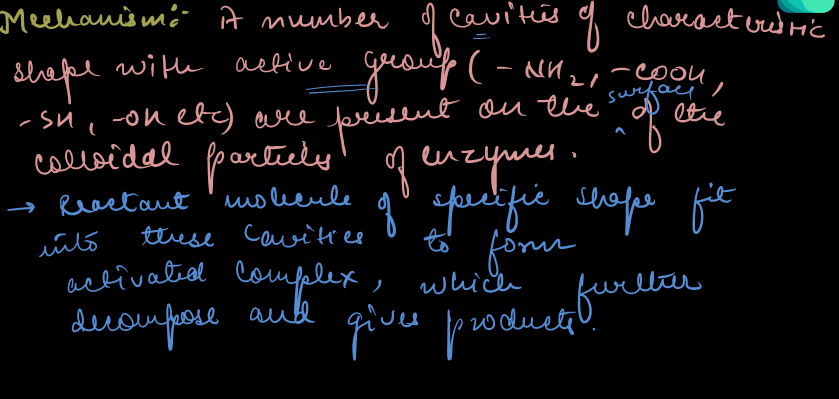 Mechanism:- A number of cavities of characteristic
shape with active group (-NH2, -COOH,
-SH, -OH etc) are present on the surface of the
colloidal particles of enzymes.
→ Reactant molecule of specific shape fit
into these cavities to form
activated complex, which further
decompose and gives products.